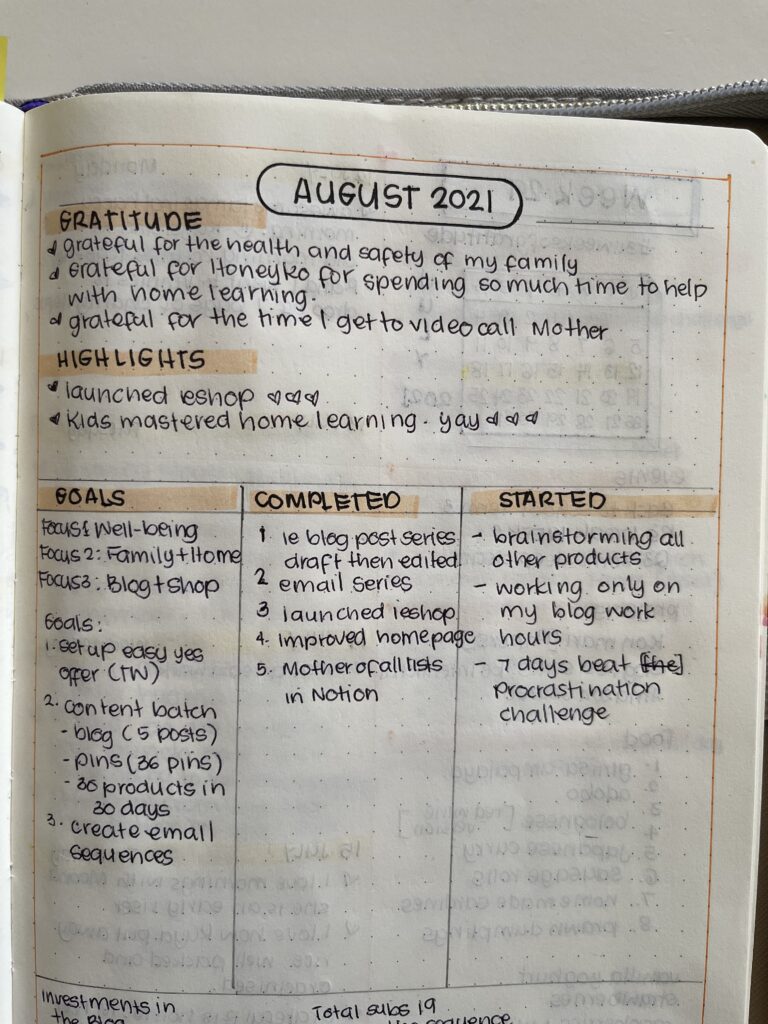 AUGUST 2021
GRATITUDE
grateful for the health and safety of my family
Grateful for Honeyko for spending so much time to help
with home learning.
grateful for the time I get to video call Mother
HIGHLIGHTS
launched ieshop ♡♡♡
Kids mastered home learning. yay ♡♡♡
GOALS
Focus1: Well-being
Focus 2: Family + Home
Focus3: Blog + shop
Goals:
1. set up easy yes
offer (TW)
2. content batch
- blog (5 posts)
- pins (36 pins)
- 30 products in
30 days
3. create email
sequences
COMPLETED
1 ie blog post series
draft then edited.
2 email series
3 launched ieshop
4. Improved homepage
5. Mother of all lists
in Notion
STARTED
- brainstorming all
other products
- working only on
my blog work
hours
- 7 days beat [the]
Procrastination
challenge
Investments in
the Blog
Total subs 19
sequence